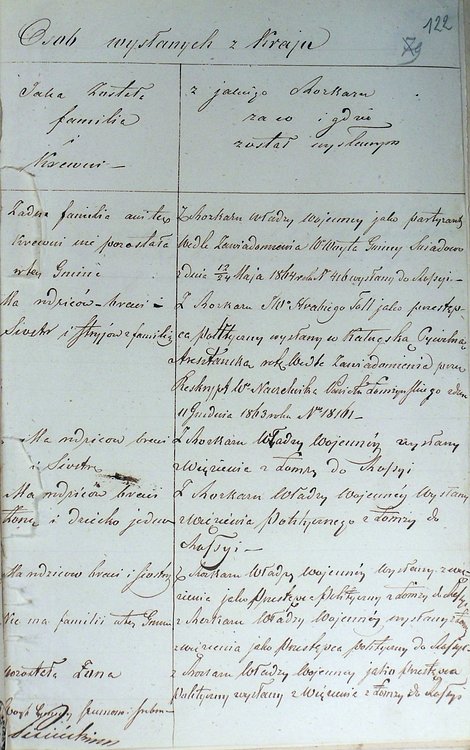 122
79
Osob wysłanych z Kraju
Jaka Została
familia
i
Krewni —
z jakiego Rozkazu
za co i gdzie
został wysłanym
Żadna familia ani też
Krewni nie pozostała
w tej Gminie
Z Rozkazu Władzy Wojennej jako partyzant
Wedle Zawiadomienia Wójta Gminy Śniadowo
z dnia 12/24 Maja 1864 roku N. 46 wysłany do Rossyi —
Ma rodziców — braci —
Siostr i stryjów z familią
Z Rozkazu Hrabiego Toll jako przestęp-
ca polityczny wysłany w Kałuzską Cywilną
Aresztancką rotę Wedle Zawiadomienia przez
Reskrypt Wo Naczelnika Powiatu Łomżyńskiego z dnia
11 Grudnia 1863 roku No 18161 —
Ma rodziców braci
i Siostrę
Z Rozkazu Władzy Wojennej wysłany
z Więzienia z Łomży do Rossyi
Ma rodziców braci
Żonę i dziecko jedno
Z Rozkazu Władzy Wojennej Wysłany
z więzienia Politycznego z Łomży do
Rossyi —
Ma rodziców braci i siostry
Z Rozkazu Władzy Wojennej wysłany z wię-
zienia jako Przestępca Polityczny z Łomży do Rossyi
Nie ma familii w tej Gminie
z Rozkazu Władzy Wojennej wysłany z
więzienia jako Przestępca polityczny do Rossyi
pozostała Żona
z Rozkazu Władzy Wojennej jako Przestępca
Polityczny wysłany z Więzienia z Łomży do Rossyi
Wójt Gminy